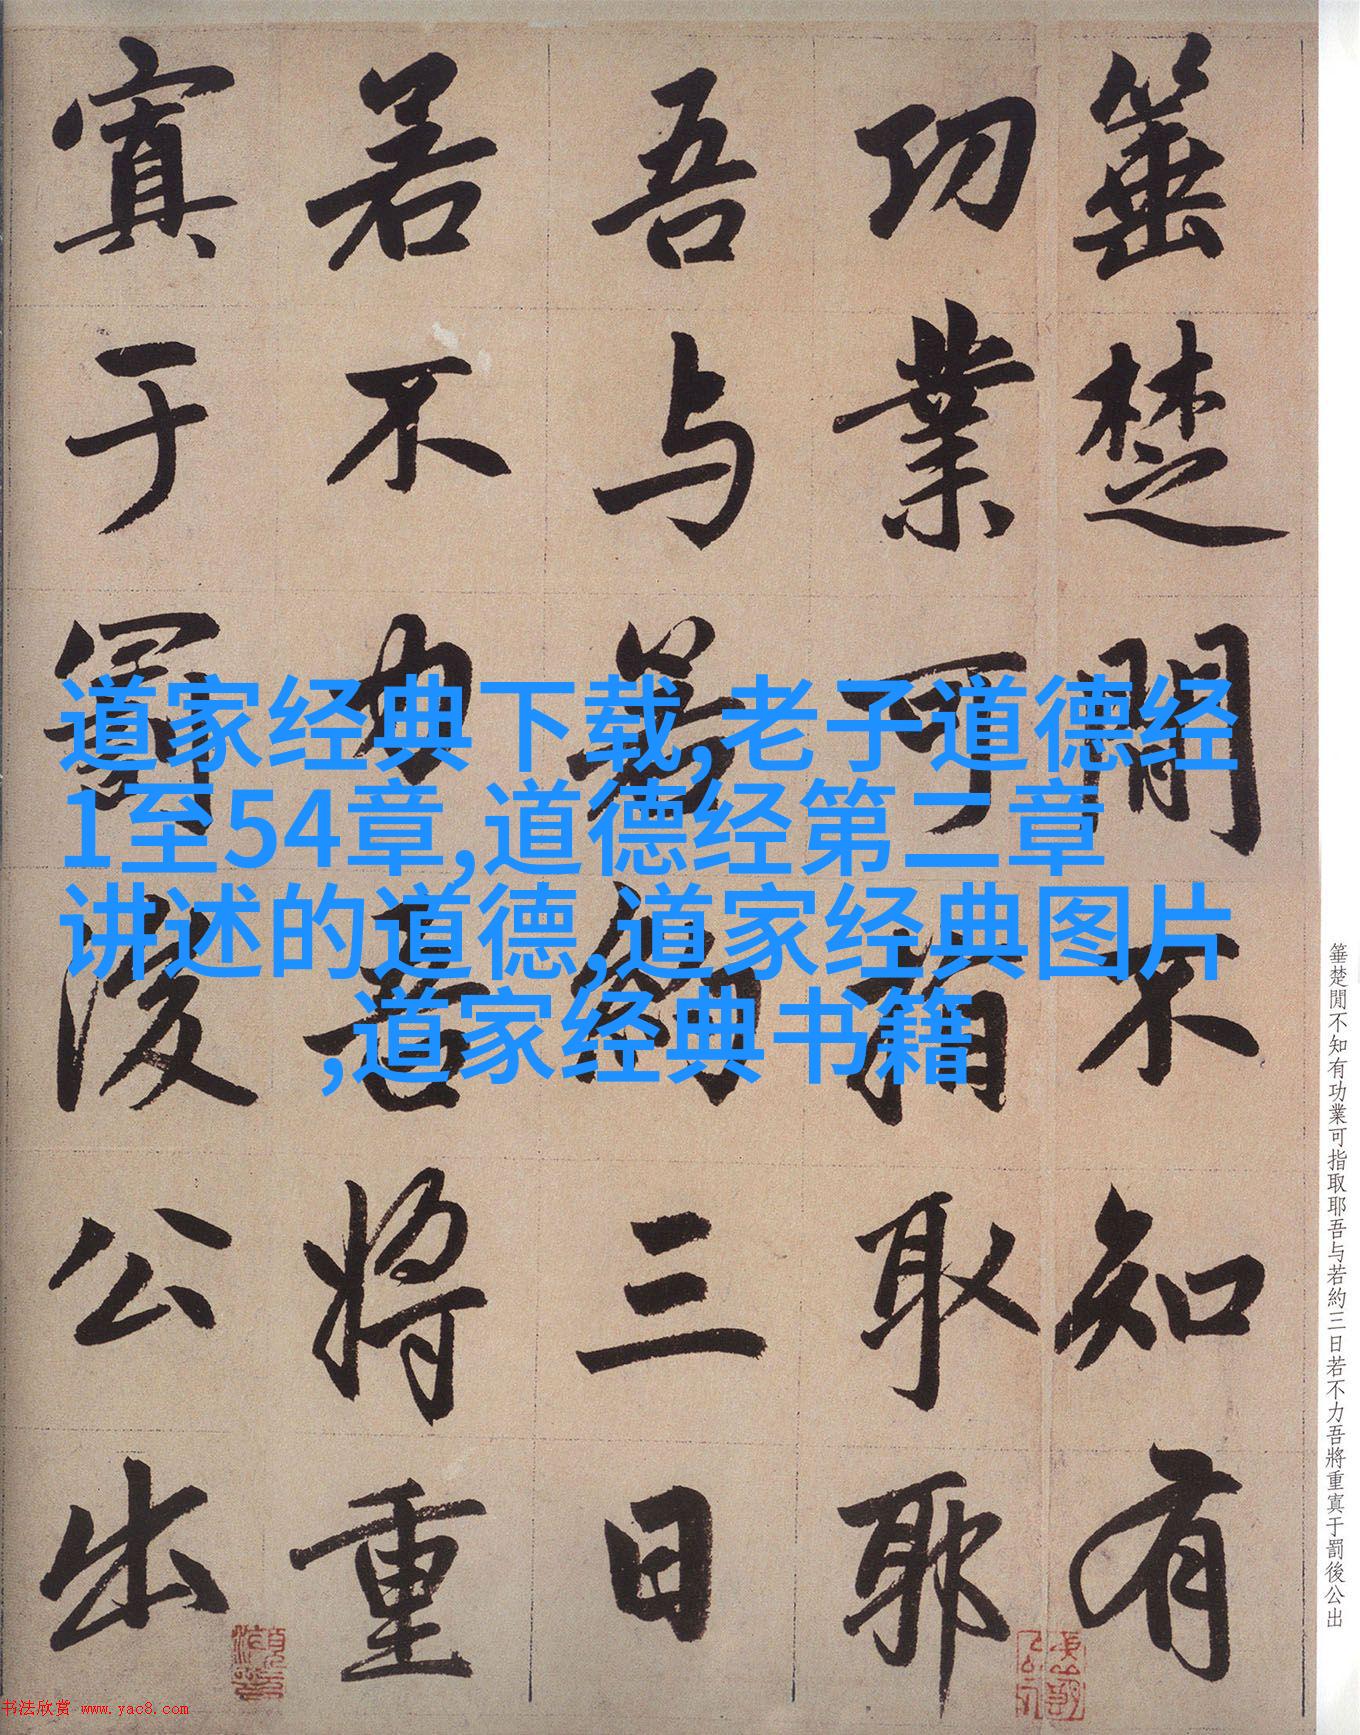 箠楚閒不知有
功業可指取耶
吾与若約三日
若不力吾將重
寘于罰後公出
道家经典下载,老子道德经
1至54章,道德经第二章
讲述的道德,道家经典图片
,道家经典书籍
箠楚閒不知有功業可指取耶吾与若約三日若不力吾將重寘于罰後公出
书法欣赏 www.yac8.com